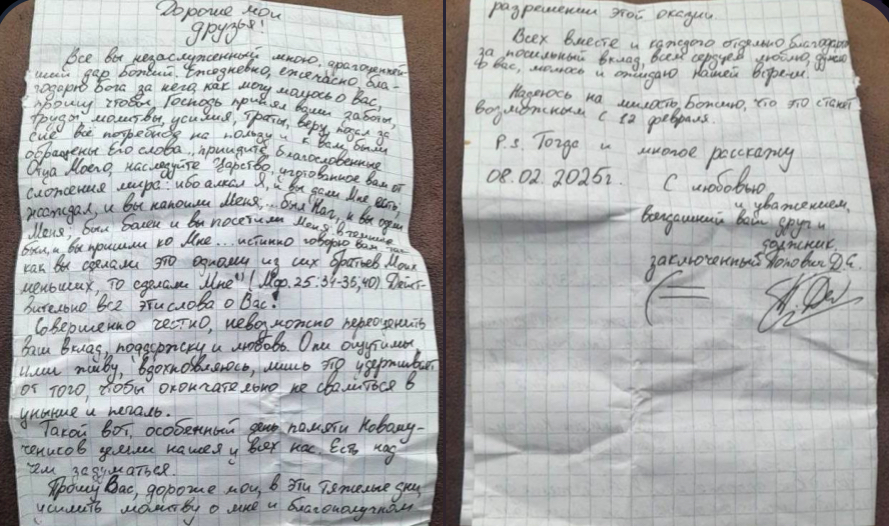 Дороже мои
друзья!
Все вы незаслуженный мною, драгоценней-
ший дар Божий. Ежедневно, ежечасно бла-
годарю Бога за него, как могу молюсь о Вас,
прошу чтобы Господь принял ваши заботы,
труды, молитвы, усилия, траты, веру, послал за
сие всё потребное на пользу и к вам были
обращены Его слова: "приидите, благословенные
Отца Моего, наследуйте Царство, уготованное вам от
сложения мира: ибо алкал Я, и вы дали Мне есть;
жаждал, и вы напоили Меня;... был Наг, и вы одели
Меня; был болен и вы посетили Меня; в темнице
был, и вы пришли ко Мне... истинно говорю вам: так-
как вы сделали это одному из сих братьев Моих
меньших, то сделали Мне" (Мф. 25:34-36,40) Дейст-
вительно все эти слова о Вас!
Совершенно честно, невозможно переоценить
ваш вклад, поддержку и любовь. Они ощутимы
ими живу, вдохновляюсь, лишь это удерживает
от того, чтобы окончательно не свалиться в
уныние и печаль.
Такой вот, особенный день памяти Новому-
чеников земли нашея и всех нас. Есть над
чем задуматься.
Прошу Вас, дороже мои, в эти тяжелые дни,
усилить молитву о мне и благополучном
разрешении этой оказии.
Всех вместе и каждого отдельно благодарю
за посильный вклад, всем сердцем люблю, думаю
о вас, молюсь и ожидаю нашей встречи.
Надеюсь на милость Божию, что это станет
возможным с 12 февраля.
P.s. Тогда и многое расскажу
08.02.2025г.
С любовью
и уважением,
всегдашний ваш друг и
должник,
заключенный Попович Д.С.